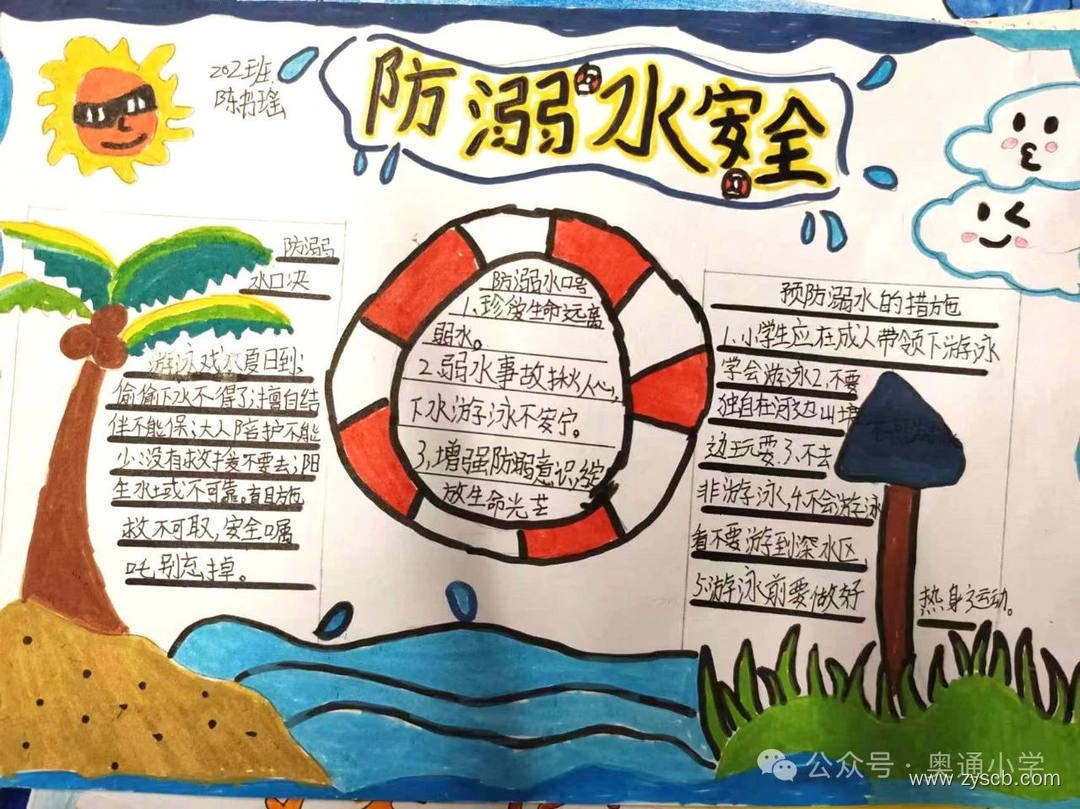 202班
陈书瑶
防溺水安全
防溺
水口决
游泳戏水夏日到,
偷偷下水不得了;擅自结
伴不能保;大人陪护不能
少;没有救援不要去;陌
生水域不可靠。盲目施
救不可取,安全嘱
吒别忘掉。
防溺水口号
1.珍爱生命远离
弱水。
2.弱水事故揪人心,
下水游泳不安宁。
3.增强防弱意识,绽
放生命光芒
预防溺水的措施
1.小学生应在成人带领下游泳
学会游泳2.不要
独自在河边山塘
边玩耍3.不去
非游泳,4.不会游泳
看不要游到深水区
5.游泳前要做好
热身运动。
公众号·奥通小学
www.zyscb.com